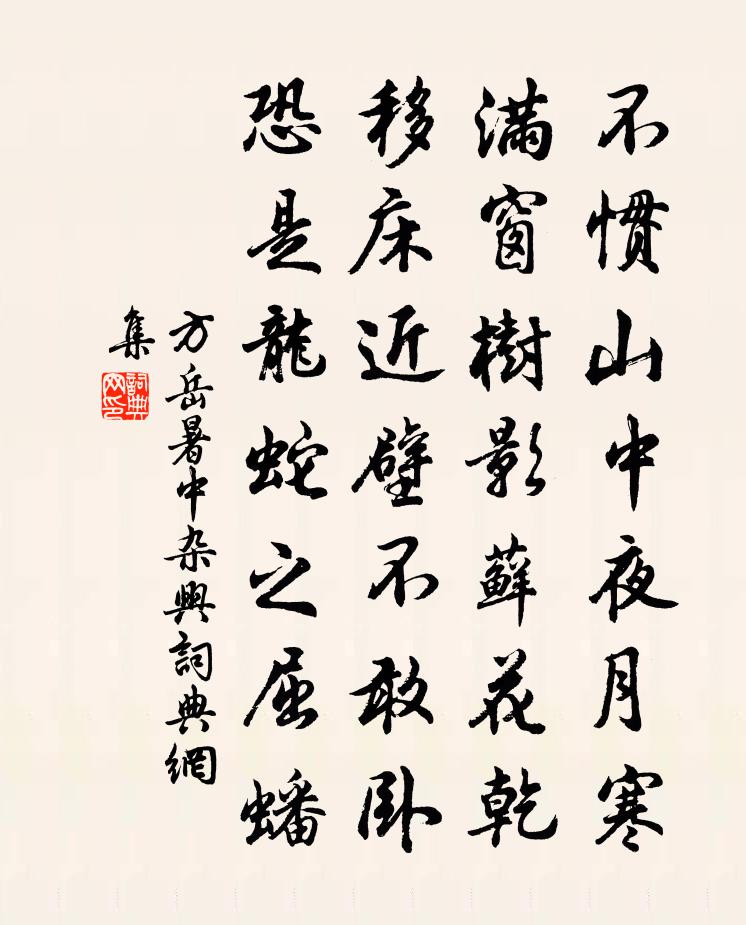 不慣山中夜月寒
滿窗樹影蘚花乾
移床近壁不敢卧
恐是龍蛇之屈蟠
方岳暑中杂興詞典網
集
詞典
网印